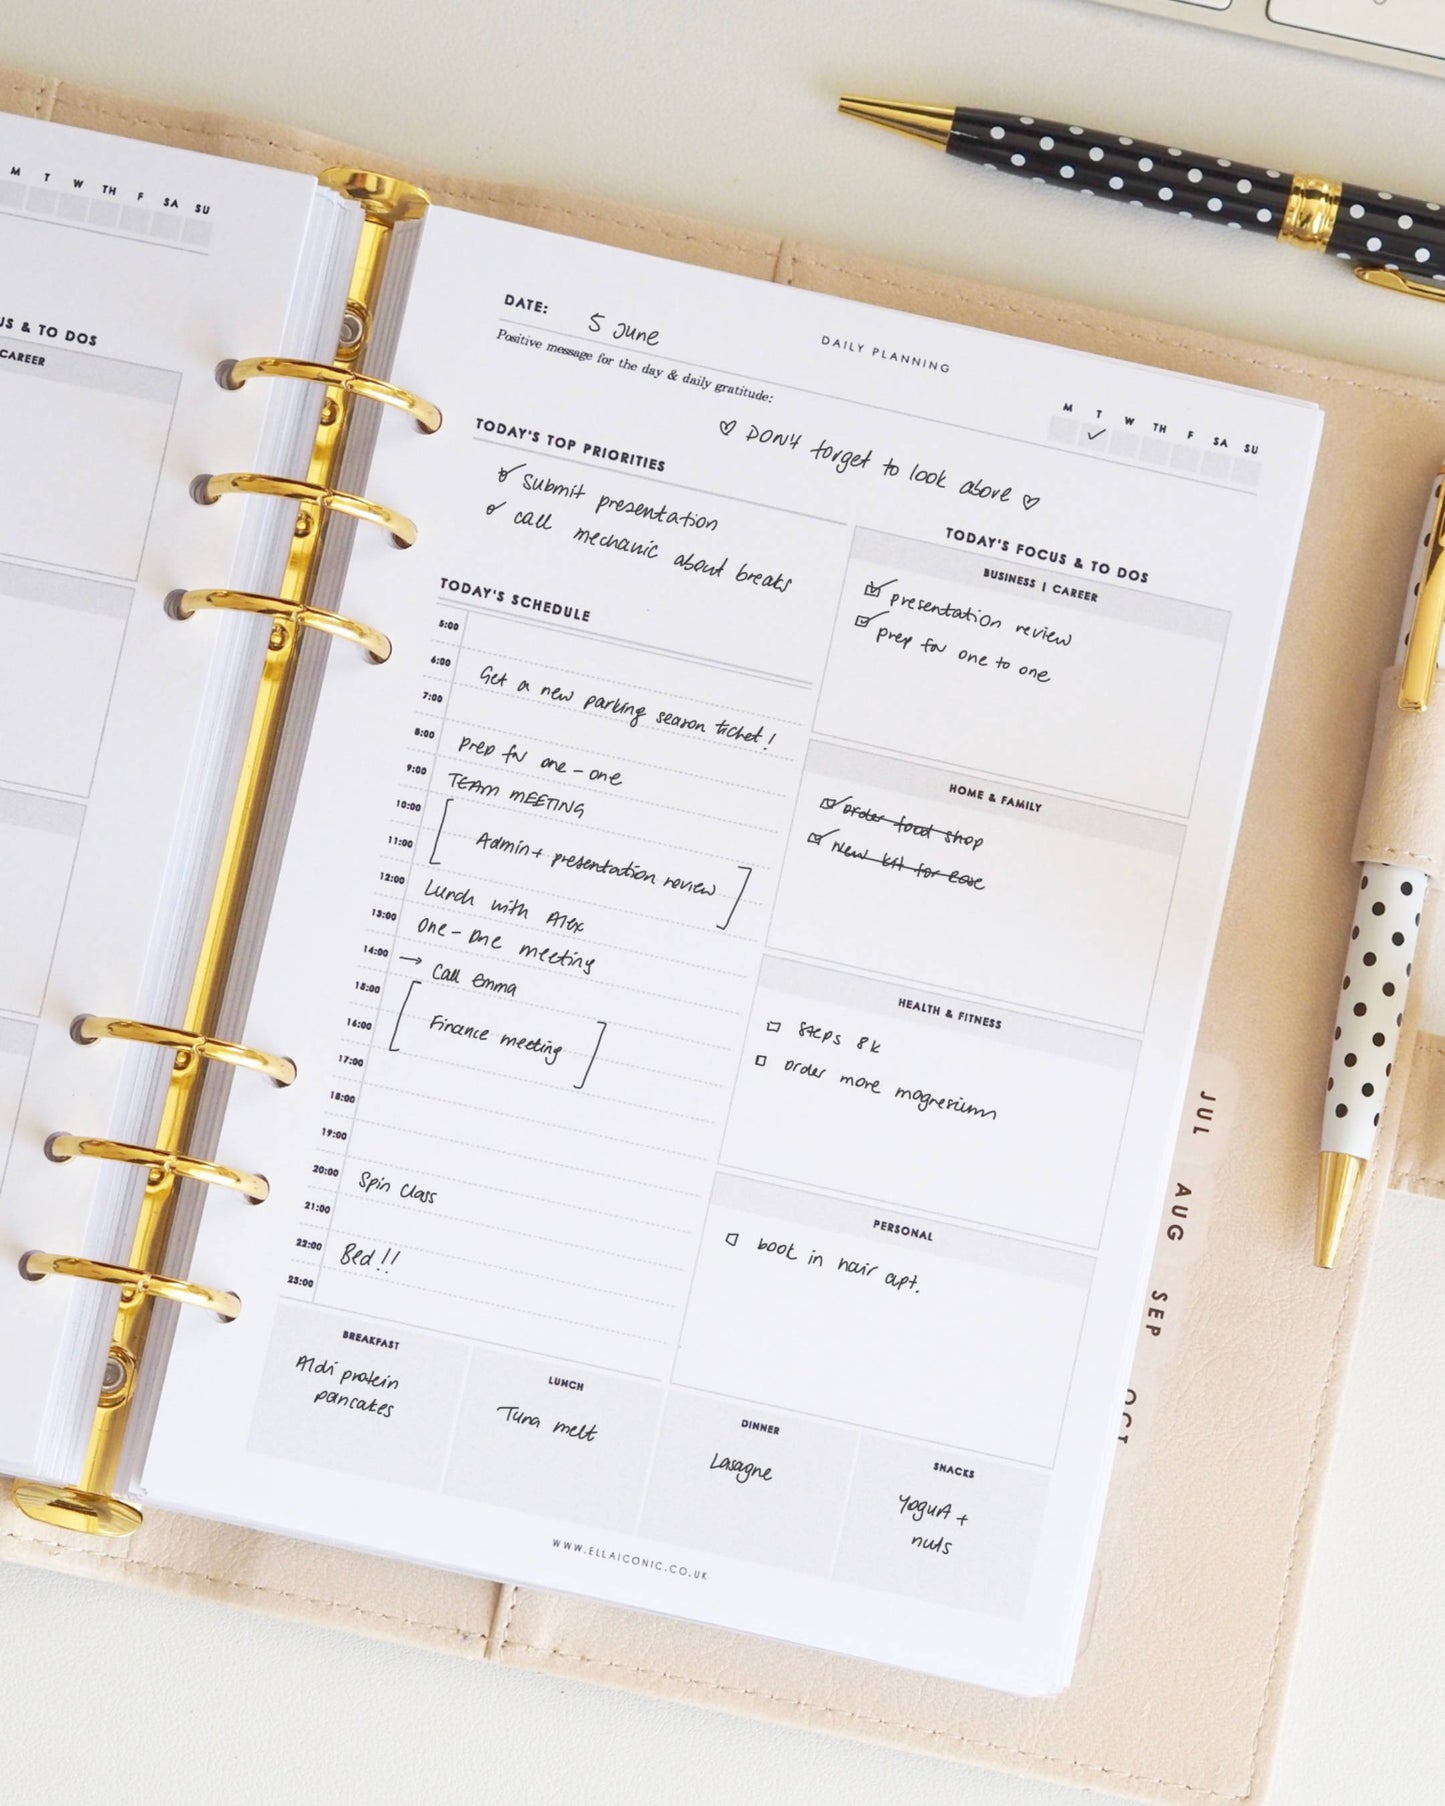 M T W TH F SA SU
US & TO DOS
CAREER
DATE: 5 June
DAILY PLANNING
Positive message for the day & daily gratitude:
M T W TH F SA SU
♡ DON't forget to look above ♡
TODAY'S TOP PRIORITIES
submit presentation
call mechanic about breaks
TODAY'S SCHEDULE
5:00
6:00
Get a new parking season ticket!
7:00
8:00
prep for one-one
9:00
TEAM MEETING
10:00
Admin + presentation review
11:00
12:00
Lunch with Alex
13:00
One-One meeting
14:00
→ Call Emma
15:00
Finance meeting
16:00
17:00
18:00
19:00
20:00
Spin Class
21:00
22:00
Bed!!
23:00
TODAY'S FOCUS & TO DOS
BUSINESS | CAREER
presentation review
prep for one to one
HOME & FAMILY
order food shop
New kit for
HEALTH & FITNESS
Steps 8k
order more magnesium
PERSONAL
book in hair apt.
BREAKFAST
Aldi protein
pancakes
LUNCH
Tuna melt
DINNER
Lasagne
SNACKS
Yogurt +
nuts
WWW.ELLAICONIC.CO.UK
JUL
AUG
SEP
OCT